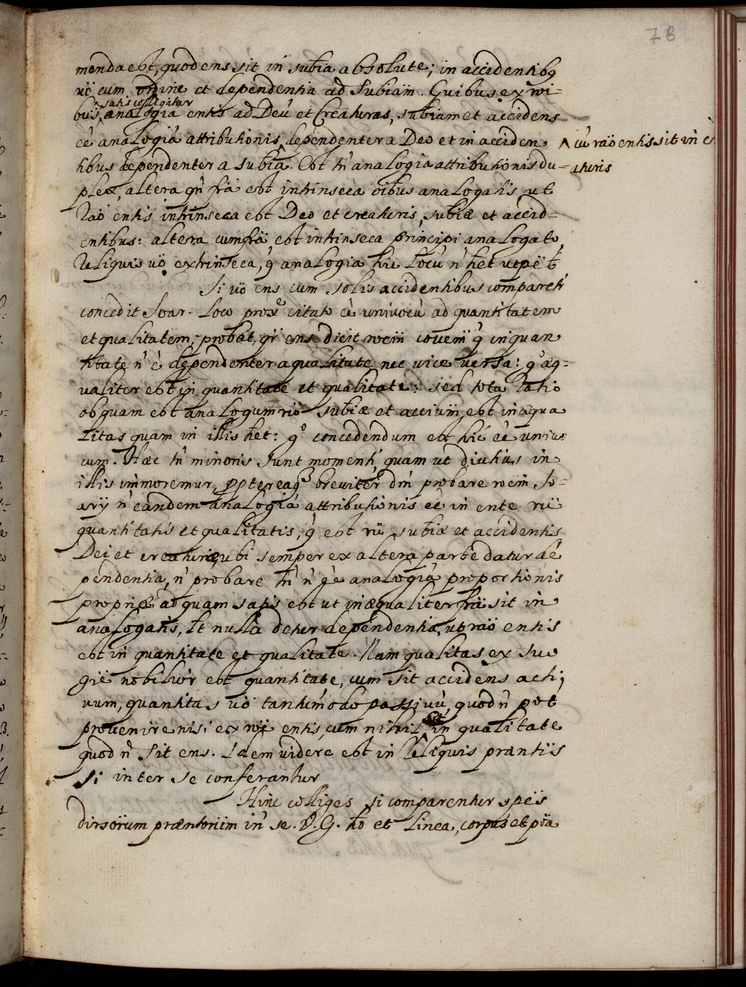 78
menda est, quod ens sit in subīa absolute; in accidentibq
vĕ cum ordine et dependentia ad subiam. Quibus ex vi-
satis colligitur
bus, analogia entis ad Deū et Creaturas, subiam et accidens
eē analogiā attributionis, dependenter a Deo et in acciden
^ cū rāo entis sit in c
tibus dependenter a subiā. Est tn̄ analogia attributionis du-
aturis
plex, altera qn̄ frā est intrinseca oībus analogatis, ut
rāo entis intrinseca est Deo et creaturis, subiæ et accid-
entibus: altera cum frā est intrinseca principi analogato,
reliquis vō extrinseca, q̄ analogia hic locū n̄ het
Si vō ens cum solis accidentibus comparet
concedit Soar. loco proxe citato eē univocū ad quantitatem
et qualitatem, probat, qr̄ ens dicit roem cōvem q̄ in quan
titate n̄ ē dependenter a qualitate nec vice versa: go æq-
ualiter est in quantitate et qualitate: sed tota ratio
ob quam est analogum subiæ et est inæqua
litas quam in illis het: go concedendum est hīc eē univo
cum. Hæc tn̄ minoris sunt momenti, quam ut diutius in
illis immoremur, proptereaq breviter dn̄ probare roem, So-
arij n̄ eandem analogiā attributionis eē in ente
quantitatis et qualitatis, q̄ est subiæ et accidentis
Dei et creaturæ, ubi semper ex altera parte datur de
pendentia, n̄ probare tn̄ n̄ analogiā proportionis
propriē ad quam satis est ut inæqualiter frā sit in
analogatis, et nulla detur dependentia, ut rāo entis
est in quantitate et qualitate. Nam qualitas ex suo
gn̄e nobilior est quantitate, cum sit accidens acti
vum, quantitas vō tantummodo passivū, quod n̄ pot
provenire nisi ex entis cum nihil in qualitate
quod n̄ sit ens. Idem videre est in reliquis
si inter se conferantur
Hinc colliges si comparentur spēs
in se. V.G. hō et linea, corpus et